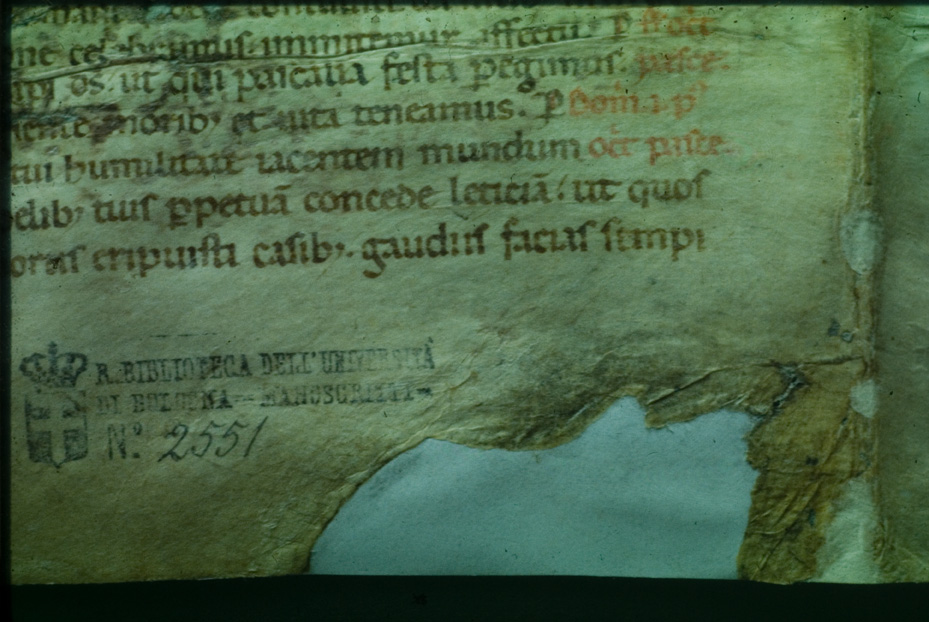 imitemur affectu. P
os. ut qui pascalia festa pegimus. pasce.
morib; et uita teneamus. P Dom. i. p
tui humilitate iacentem mundum oct pasce.
elib; tuis ꝑpetuā concede leticiā: ut quos
eripuisti casib;. gaudiis facias sempi
R. BIBLIOTECA DELL'UNIVERSITÀ
DI BOLOGNA — MANOSCRITTI —
N.º 2551